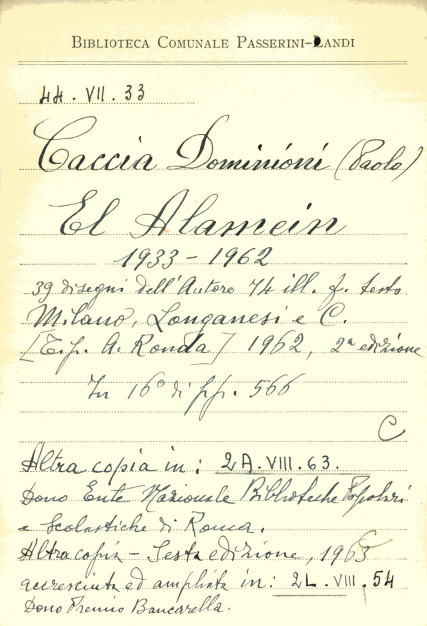 BIBLIOTECA COMUNALE PASSERINI-LANDI
44. VII. 33
Caccia Dominioni (Paolo)
El Alamein
1933 - 1962
39 disegni dell'Autore 74 ill. f. testo
Milano, Longanesi e C.
[Tip. A. Ronda] 1962, 2ª edizione
In 16° di pp. 566
C
Altra copia in: 2A.VIII.63.
Dono Ente Nazionale Biblioteche Popolari
e Scolastiche di Roma.
Altra copia - Sesta edizione, 1963
accresciuta ed ampliata in: 2L.VIII.54
Dono Premio Bancarella.